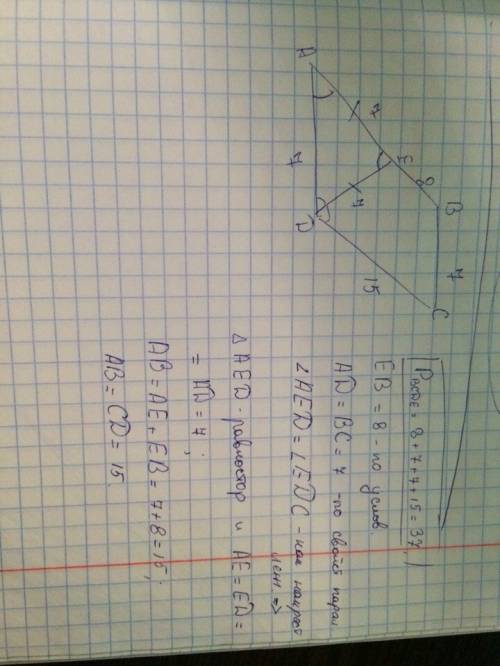 B
7
C
8
E
7
15
A
7
7
D
P BCDE = 8+7+7+15=37
EB = 8 - по услов
AD = BC = 7 - по
парал.
∠AED = ∠EDC - как накрест
леж =>
△ AED - равностор и AE = ED =
= AD = 7 ;
AB = AE + EB = 7+8 = 15;
AB = CD = 15.